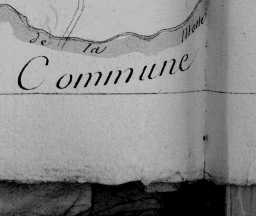 de la
Commune